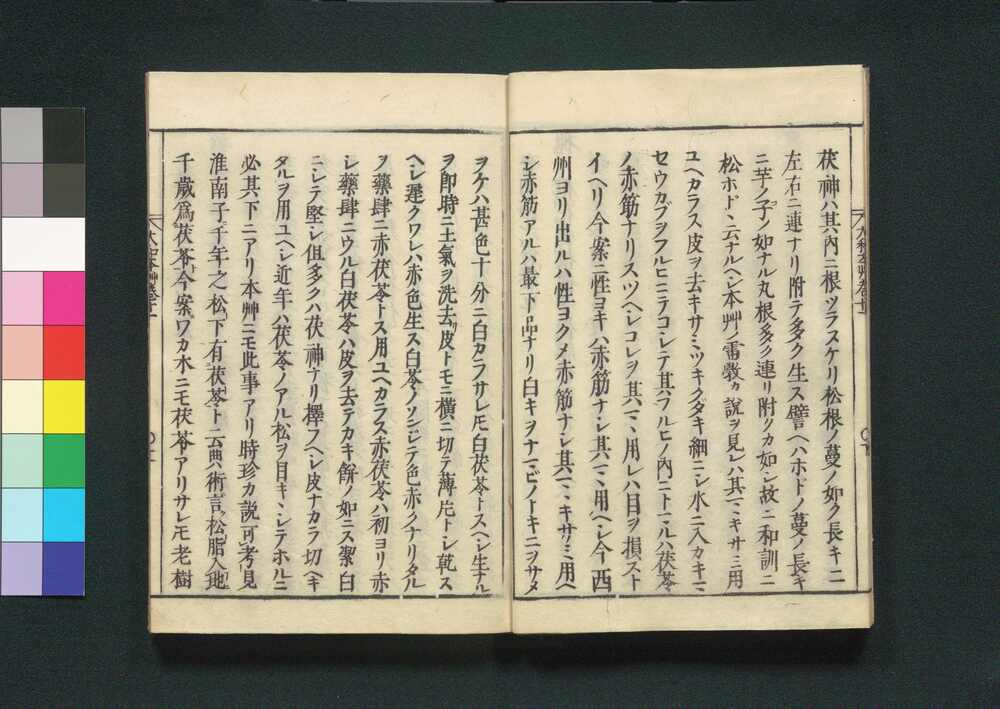 茯神ハ其内ニ根ツラヌケリ松根ノ蔓ノ如ク長キニ
左右ニ連ナリ附テ多ク生ス譬ヘハホドノ蔓ノ長キ
ニ芋ノ子ノ如ナル丸根多ク連リ附クカ如シ故ニ和訓ニ
松ホドト云ナルヘシ本艸ノ雷斅カ説ヲ見レハ其マヽキサミ用
ユヘカラス皮ヲ去キサミツキクダキ細ニシ水ニ入カキマ
セウカブヲフルヒニテコシテ其フルヒノ内ニトマルハ茯苓
ノ赤筋ナリスツヘシコレヲ其マヽ用レハ目ヲ損スト
イヘリ今案ニ性ヨキハ赤筋ナシ其マヽ用ヘシ今西
州ヨリ出ルハ性ヨクメ赤筋ナシ其マヽキサミ用ヘ
シ赤筋アルハ最下品ナリ白キヲナマビノトキニヲサメ
ヲケハ甚色十分ニ白カラサレ𪜈白茯苓トスヘシ生ナル
ヲ即時ニ土氣ヲ洗去皮トモニ横ニ切テ薄片トシ乾ス
ヘシ遲クワレハ赤色生ス白苓ノソンシテ色赤クナリタル
ヲ藥肆ニ赤茯苓トス用ユヘカラス赤茯苓ハ初ヨリ赤
シ藥肆ニウル白茯苓ハ皮ヲ去テカキ餅ノ如ニス潔白
ニシテ堅シ但多クハ茯神ナリ擇フヘシ皮ナカラ切ヘキ
タルヲ用ユヘシ近年ハ茯苓ノアル松ヲ目キヽシテホルニ
必其下ニアリ本艸ニモ此事アリ時珍カ説可考見
淮南子千年之松下有茯苓ト云典術言松脂入地
千歳為茯苓今案ワカ木ニモ茯苓アリサレ𪜈老樹